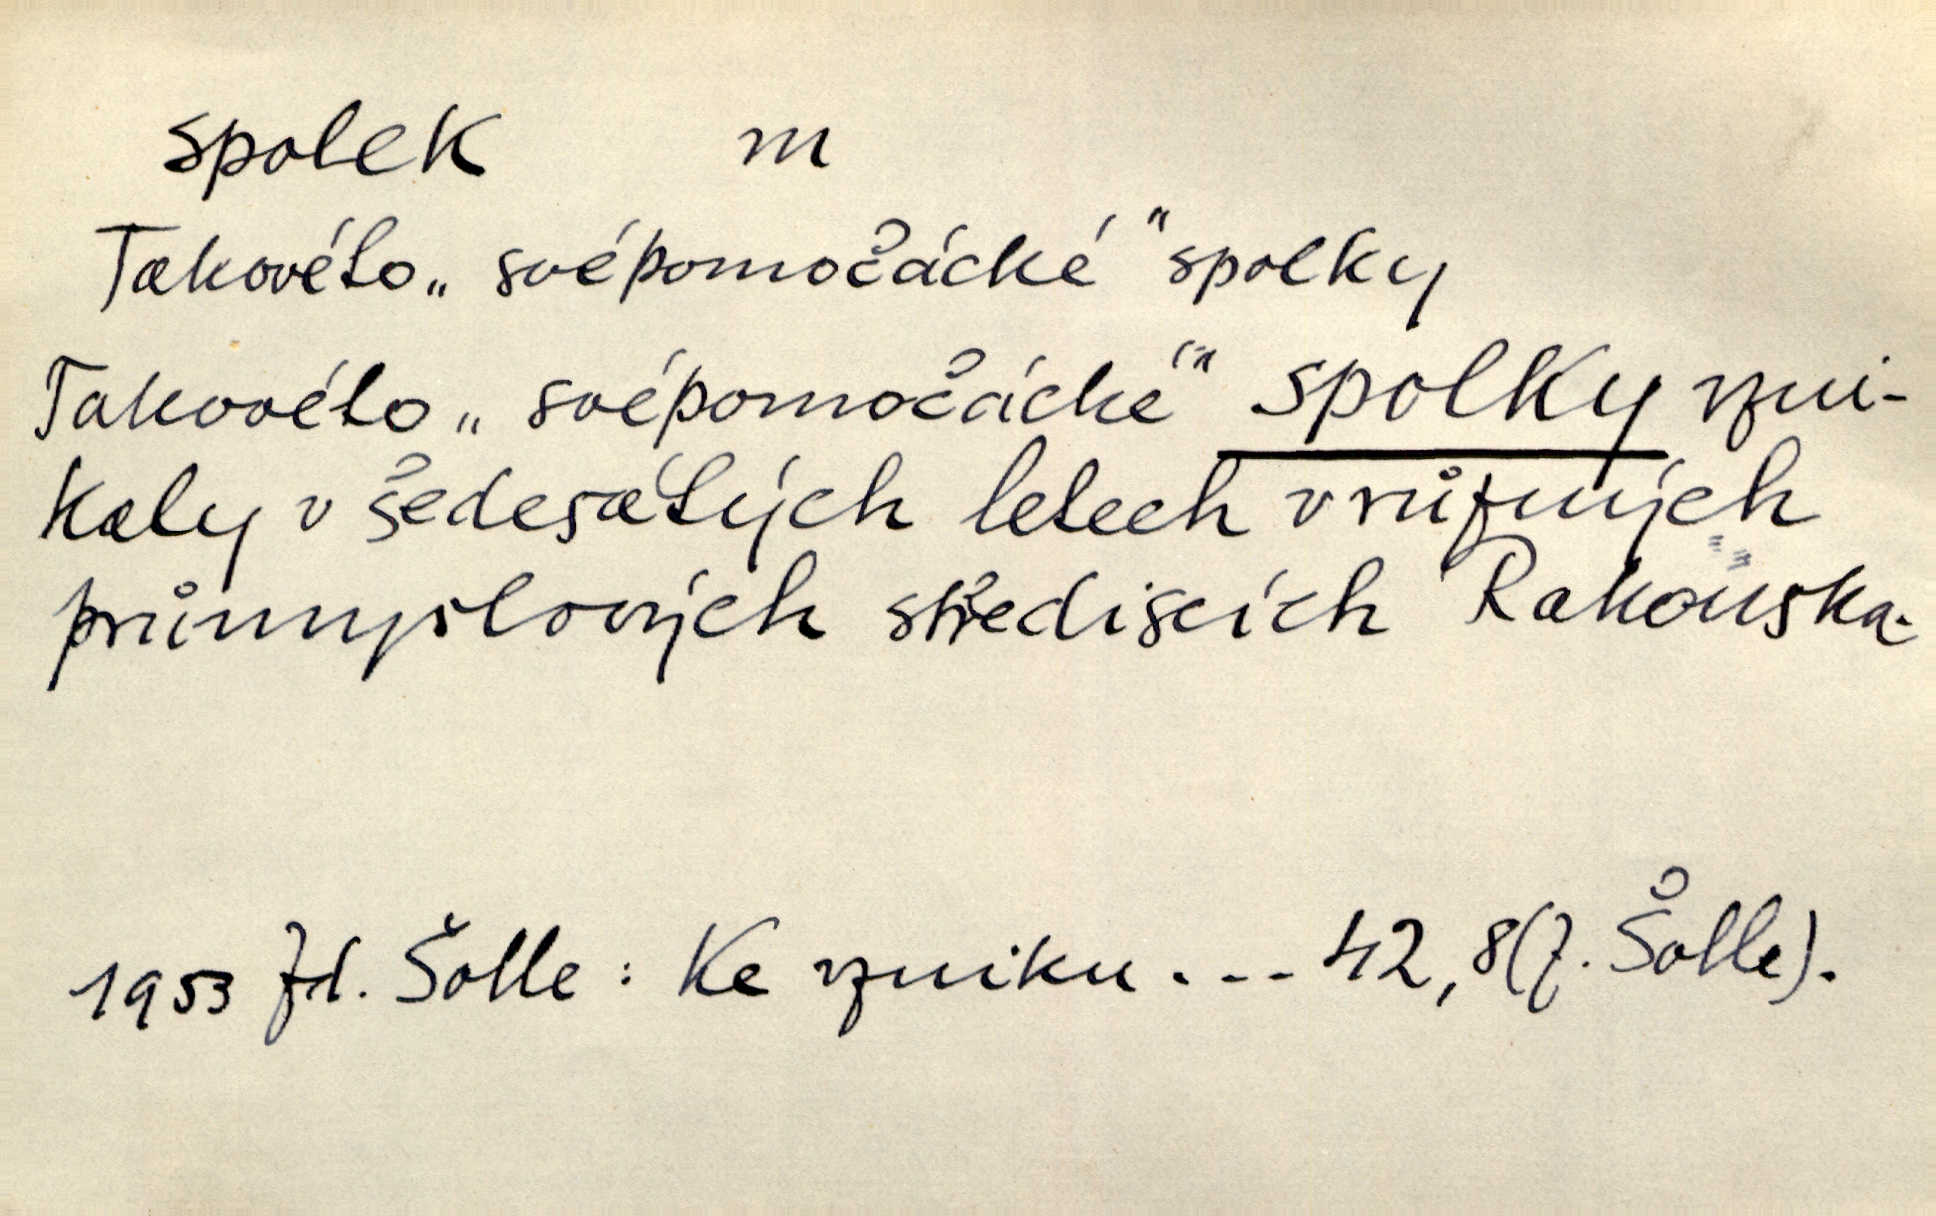 spolek m
Takovéto „svépomočácké" spolky
Takovéto „svépomočácké" spolky vzni-
kaly v šedesátých letech v různých
průmyslových střediscích Rakouska.
1953 Zd. Šolle: Ke vzniku... 42,8 (Z. Šolle).